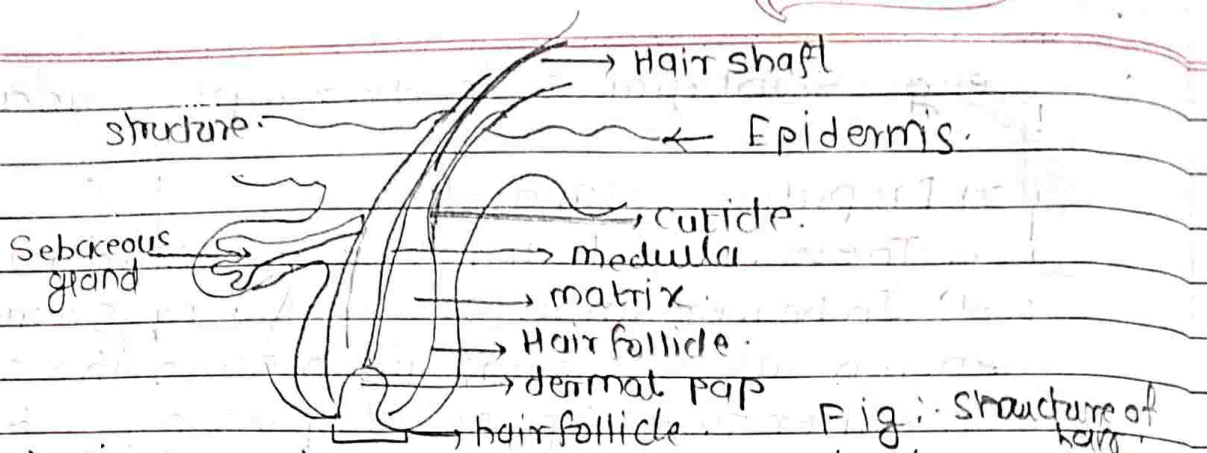 Hair shaft
structure.
Epidermis.
cuticle.
Sebaceous
gland
medulla
matrix.
Hair follicle.
dermal pap
hair follicle.
Fig: Straucture of
hair.